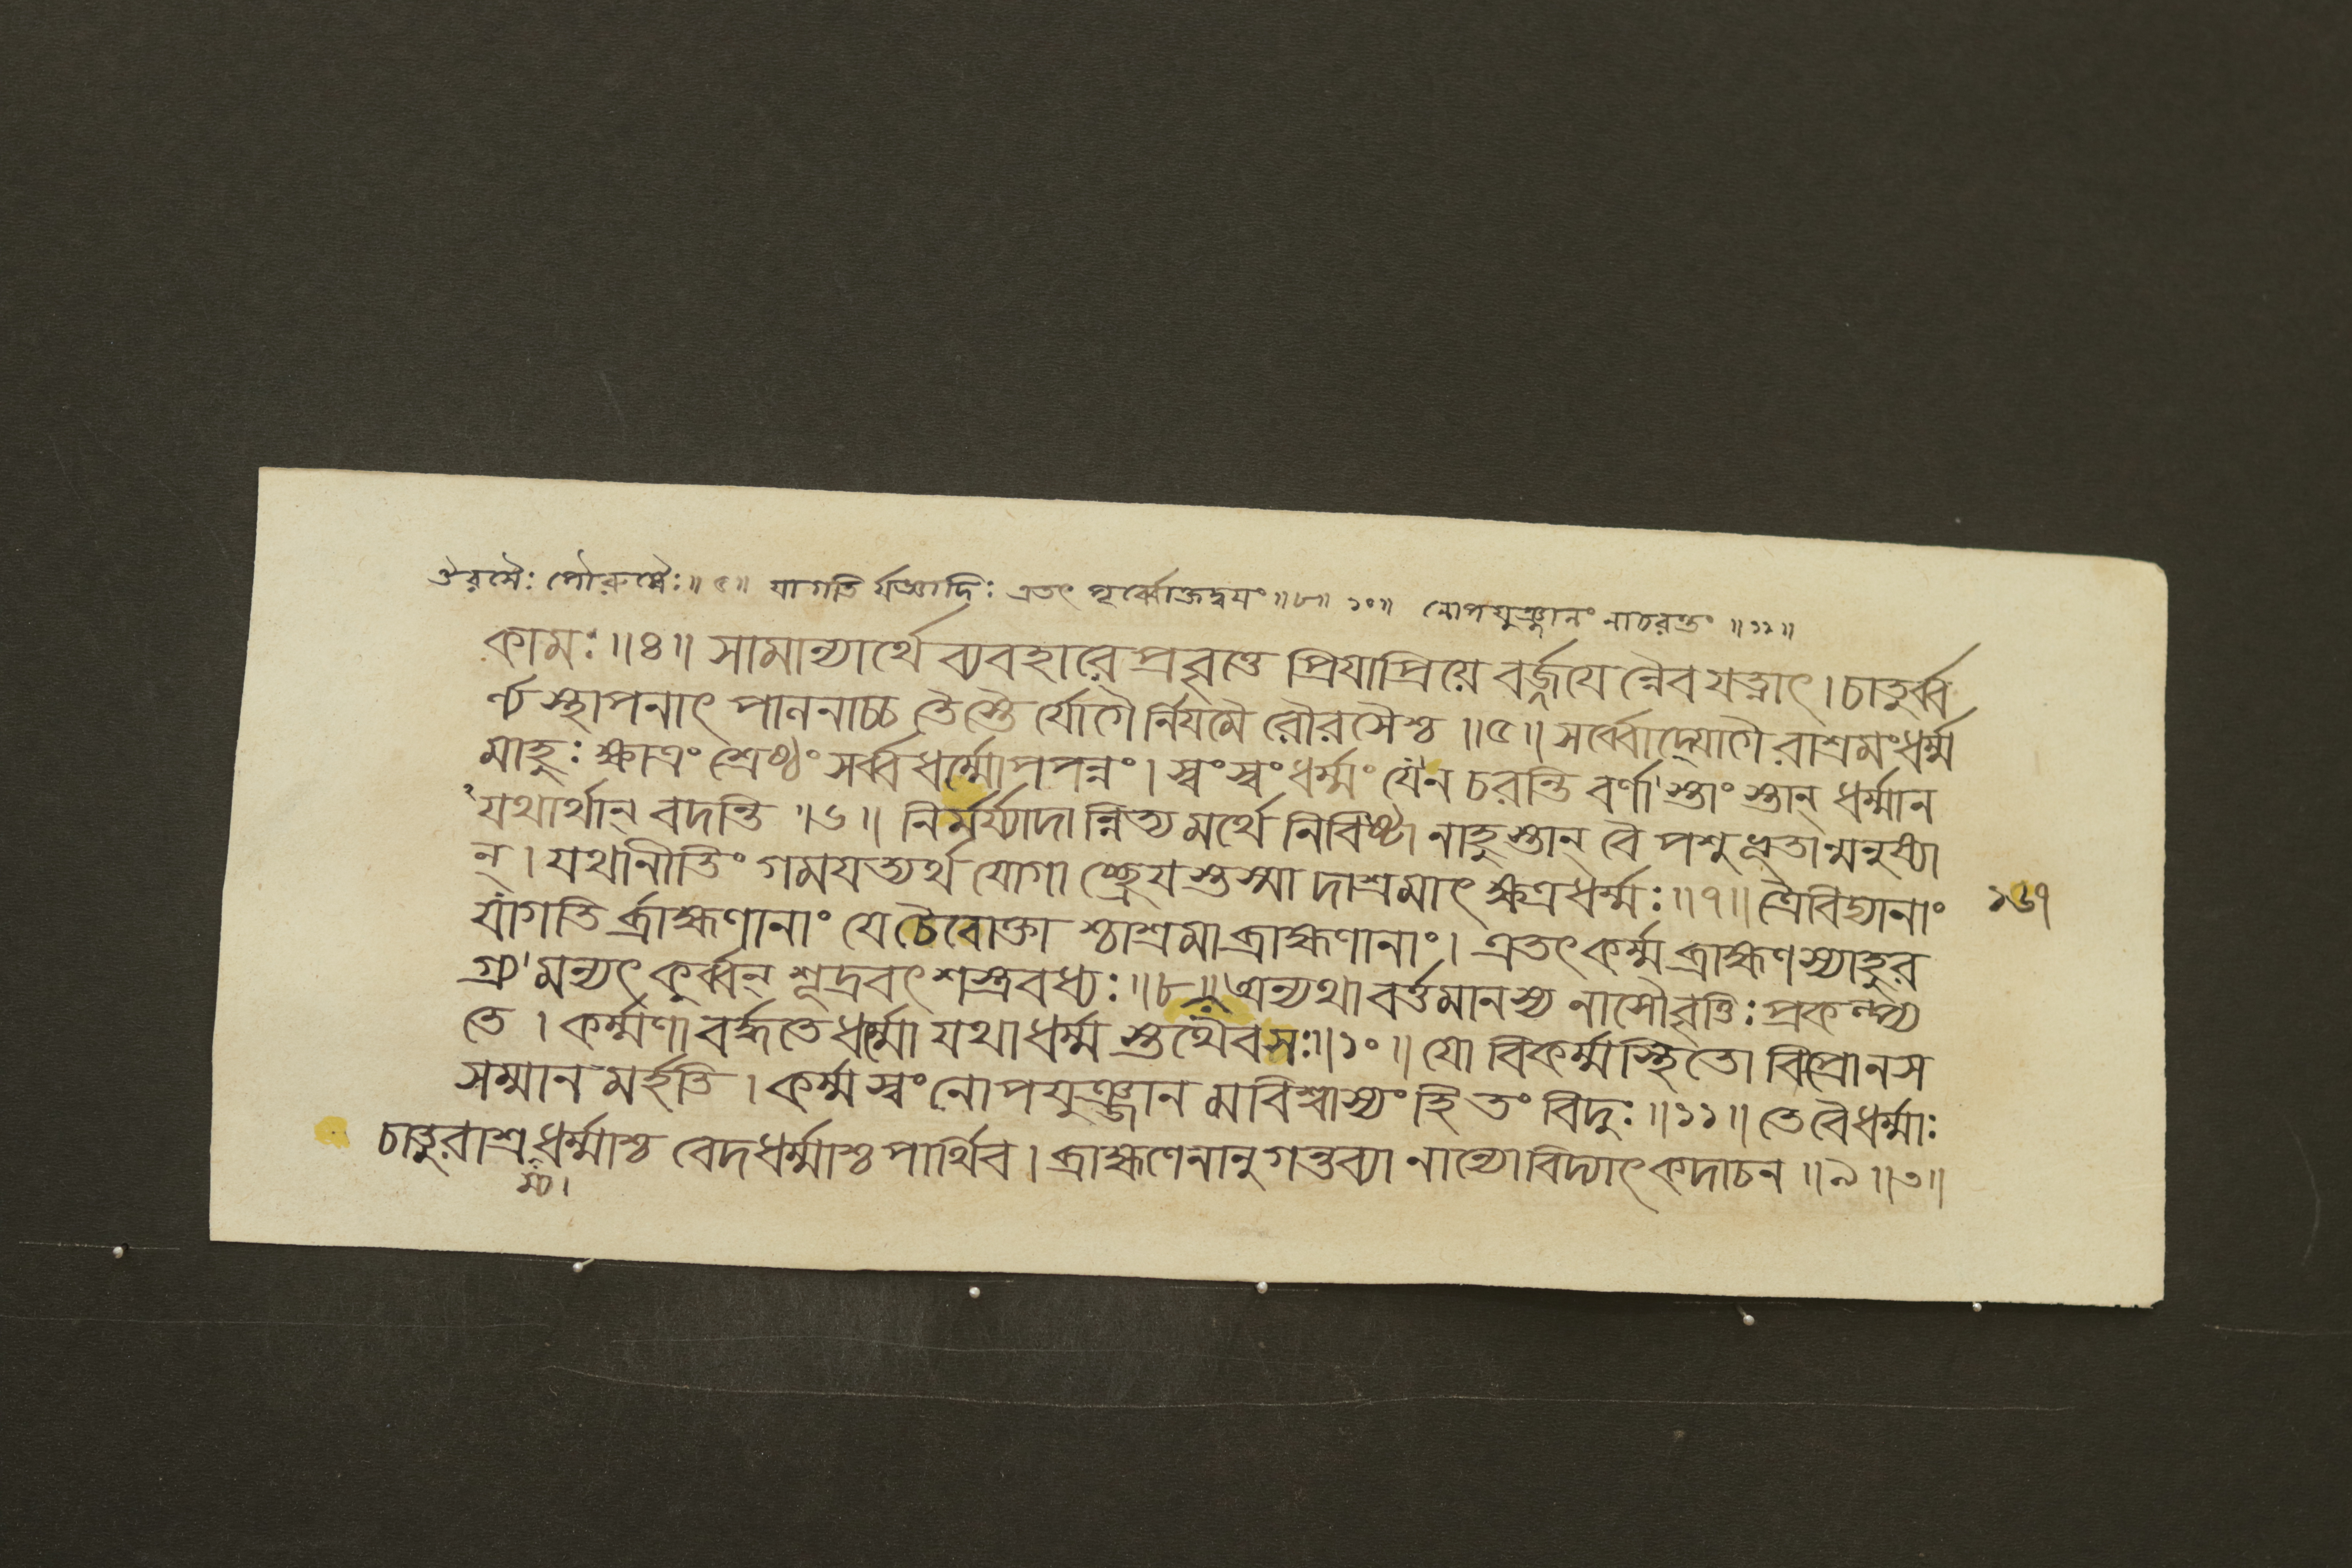 ঔরসৈঃ পৌরুষৈঃ॥৫॥ যাগতি র্যজ্ঞাদিঃ এতৎ পূর্ব্বোক্তদ্বয়ং॥৮॥ ১০॥ নোপযুঞ্জানং নাচরন্তং ॥১১॥
কামঃ॥৪॥ সামান্যার্থে ব্যবহারে প্রবৃত্তে প্রিযাপ্রিয়ে বর্জ্জযে ন্নৈব যত্নাৎ। চাতুর্ব্ব
র্ণ্য স্থাপনাৎ পাননাচ্চ তৈস্তৈ র্যোগৈ র্নিযমৈ রৌরসৈশ্চ ॥৫॥ সর্ব্বোদ্যোগৈ রাশ্রমংধর্ম্ম
মাহুঃ ক্ষাত্রং শ্রেষ্ঠং সর্ব্বধর্ম্মোপপন্নং। স্বংস্বংধর্ম্মং যেন চরন্তি বর্ণা স্তাং স্তান্ ধর্ম্মান
যথার্থান্ বদন্তি ॥৬॥ নির্মর্য্যাদা ন্নিত্য মর্থে নিবিষ্টা নাহুস্তান্ বৈ পশুভূতান্মনুষ্যা
ন্। যথানীতিং গমযত্যর্থ যোগা চ্ছ্রেয স্তস্মা দাশ্রমাৎ ক্ষত্রধর্ম্মঃ॥৭॥ ত্রৈবিদ্যানাং
যাগতি র্ব্রাহ্মণানাং যে চৈবোক্তা শ্চাশ্রমাব্রাহ্মণানাং। এতৎ কর্ম্ম ব্রাহ্মণস্যাহুর
গ্র্য মন্যৎ কুর্ব্বন্ শূদ্রবৎ শস্ত্রবধ্যঃ॥৮॥ অন্যথা বর্ত্তমানস্য নাসৌবৃত্তিঃ প্রকল্প্য
তে। কর্ম্মণা বর্দ্ধতে ধর্ম্মো যথাধর্ম্ম স্তথৈবসঃ॥১০॥ যো বিকর্ম্মস্থিতো বিপ্রোনস
সম্মান মর্হতি। কর্ম্মস্বং নোপযুঞ্জান মবিশ্বাস্যং হি তং বিদুঃ॥১১॥ তেবৈধর্ম্মাঃ
চাতুরাশ্রধর্ম্মাশ্চ বেদধর্ম্মাশ্চ পার্থিব। ব্রাহ্মণেনানুগন্তব্যা নান্যোবিদ্যাৎ কদাচন ॥৯॥৩॥
ম্য।
১৬৭